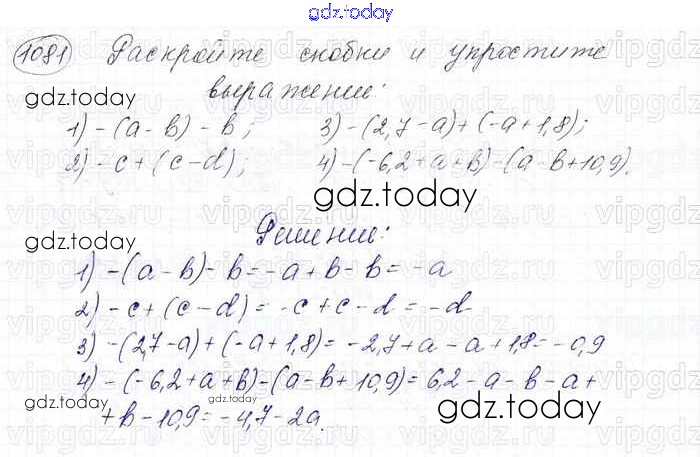 gdz.today
1081 Раскройте скобки и упростите
выражение:
gdz.today
1) -(a-b)-b; 3) -(2,7-a)+(-a+1,8);
2) -c+(c-d); 4) -(-6,2+a+b)-(a-b+10,9).
gdz.today
Решение:
gdz.today
1) -(a-b)-b=-a+b-b=-a
2) -c+(c-d)=-c+c-d=-d
3) -(2,7-a)+(-a+1,8)=-2,7+a-a+1,8=-0,9
4) -(-6,2+a+b)-(a-b+10,9)=6,2-a-b-a+
+b-10,9=-4,7-2a.
gdz.today
gdz.today